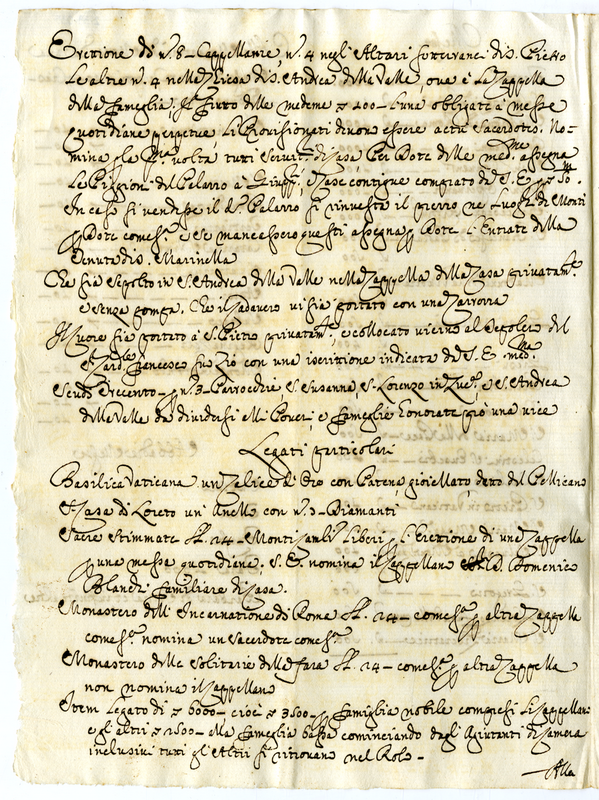 Erettione di n.º 8 - Cappellanie, n.º 4 negl'Altari sotterranei di S. Pietro
Le altre n.º 4 nella Chiesa di S. Andrea della Valle, ove è La Cappella
della famiglia. Il frutto delle medeme 400 - L'una obligata a messe
quotidiane perpetue, Li Provisionati devono essere actu Sacerdotes. No-
mina p la p.ma volta tutti Servit.i di Casa Per Dote delle med.me assegna
Le Piggioni del Palazzo a e Case contigue comprato da S. E.
In caso si vendesse il d.º Palazzo si rinvesta il prezzo ne Luoghi di Monti
p Dote come s.ª e se mancassero questi assegna p Dote L'Entrate della
Tenuta di S. Marinella
Che sia Sepolto in S. Andrea della Valle nella Cappella della Casa privatam.te
e senza pompa, Che il Cadavero vi sia portato con una Carrozza
Il Cuore sia portato a S. Pietro privatam.te, e collocato vicino al Sepolcro del
Card.le Francesco suo Zio con una iscrittione indicata da S. E. med.ma
Scudi Trecento - p n.º 3 - Parrocchie, S. Susanna, S. Lorenzo in e S. Andrea
della Valle da dividersi alli Poveri, e famiglie honorate p una vice
Legati particolari
Basilica Vaticana un Calice d'Oro con Patena gioiellato detto del Pellicano
S. Casa di Loreto un Anello con n.º 3 - Diamanti
Sacre Stimmate 24 - Monti Liberi p L'Erettione di una Cappella
p una messa quotidiana. S. E. nomina il Cappellano D. Domenico
Blanchi familiare di Casa.
Monastero dell'Incarnatione di Roma 24 - come s.ª p altra Cappella
come s.ª nomina un Sacerdote come s.ª
Monastero delle Solitarie della fara 24 - come s.ª p altra Cappella
non nomina il Cappellano
Item Legato di 6000 - cioè 3500 - p famiglia nobile compresi Li Cappellani
e gl'altri 2500 - alla fameglia bassa cominciando dagli Aiutanti di Camera
inclusivi tutti gl'Altri si ritrovano nel Rolo -
Alla